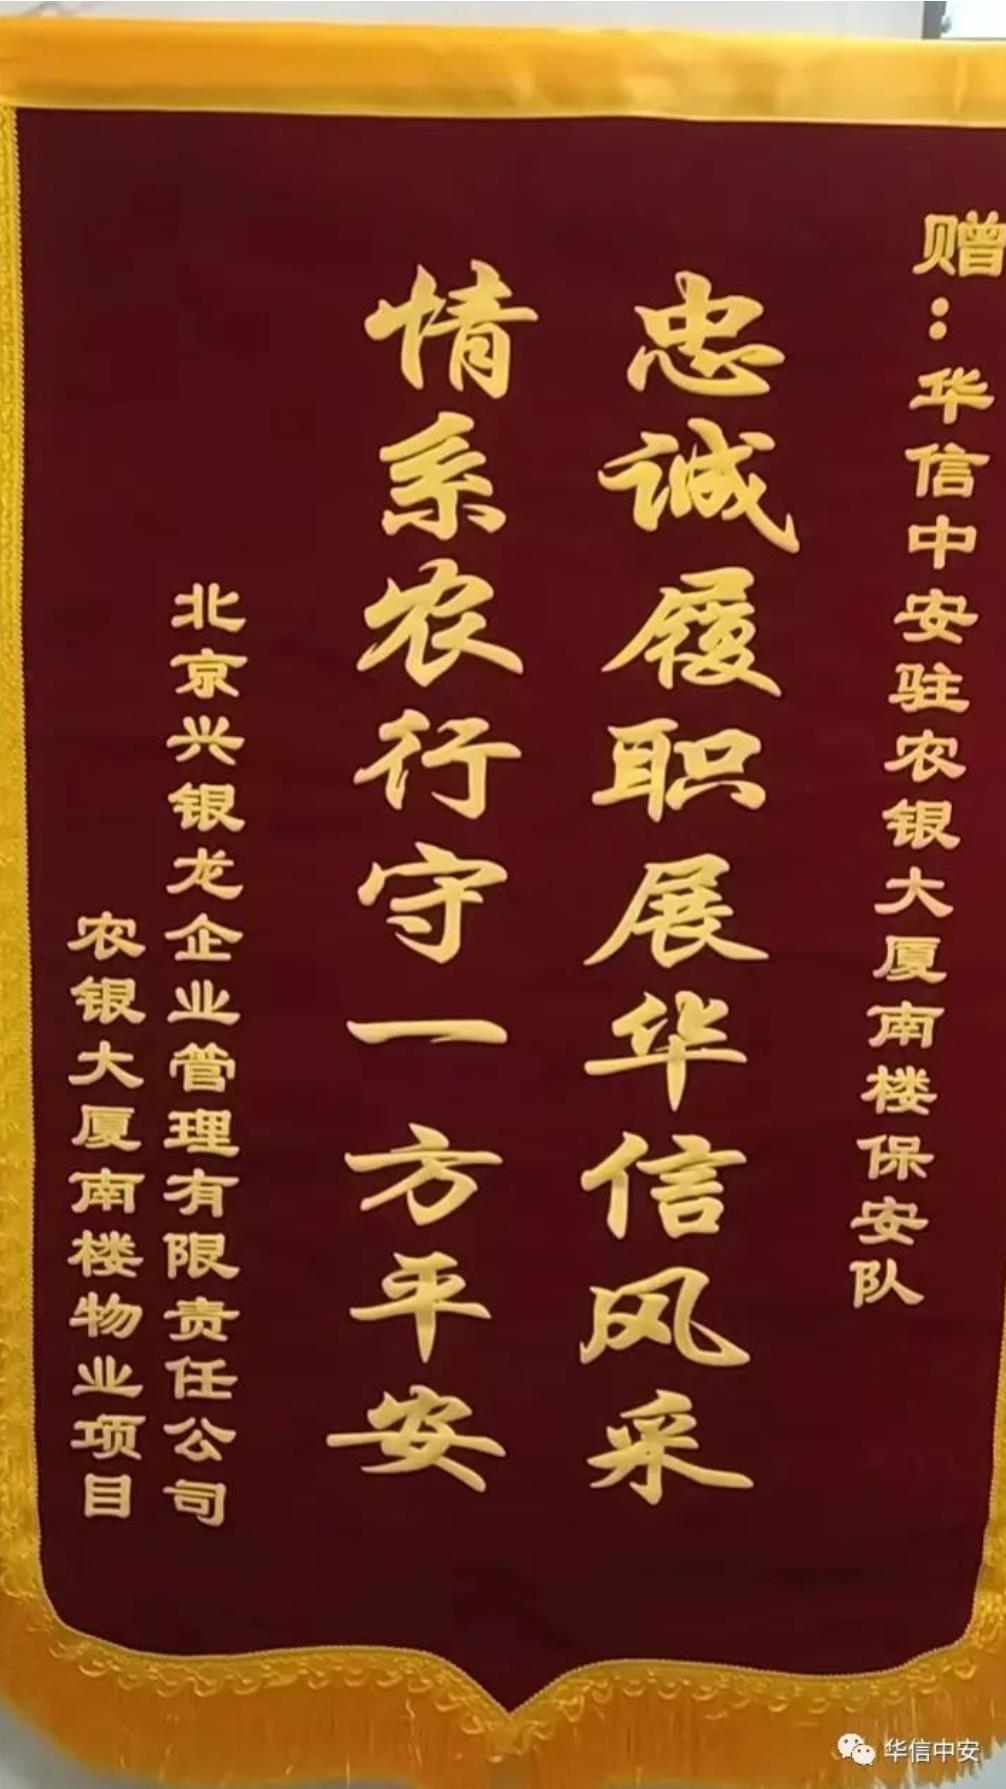 赠：华信中安驻农银大厦南楼保安队
忠诚履职展华信风采
情系农行守一方平安
北京兴银龙企业管理有限责任公司
农银大厦南楼物业项目
华信中安